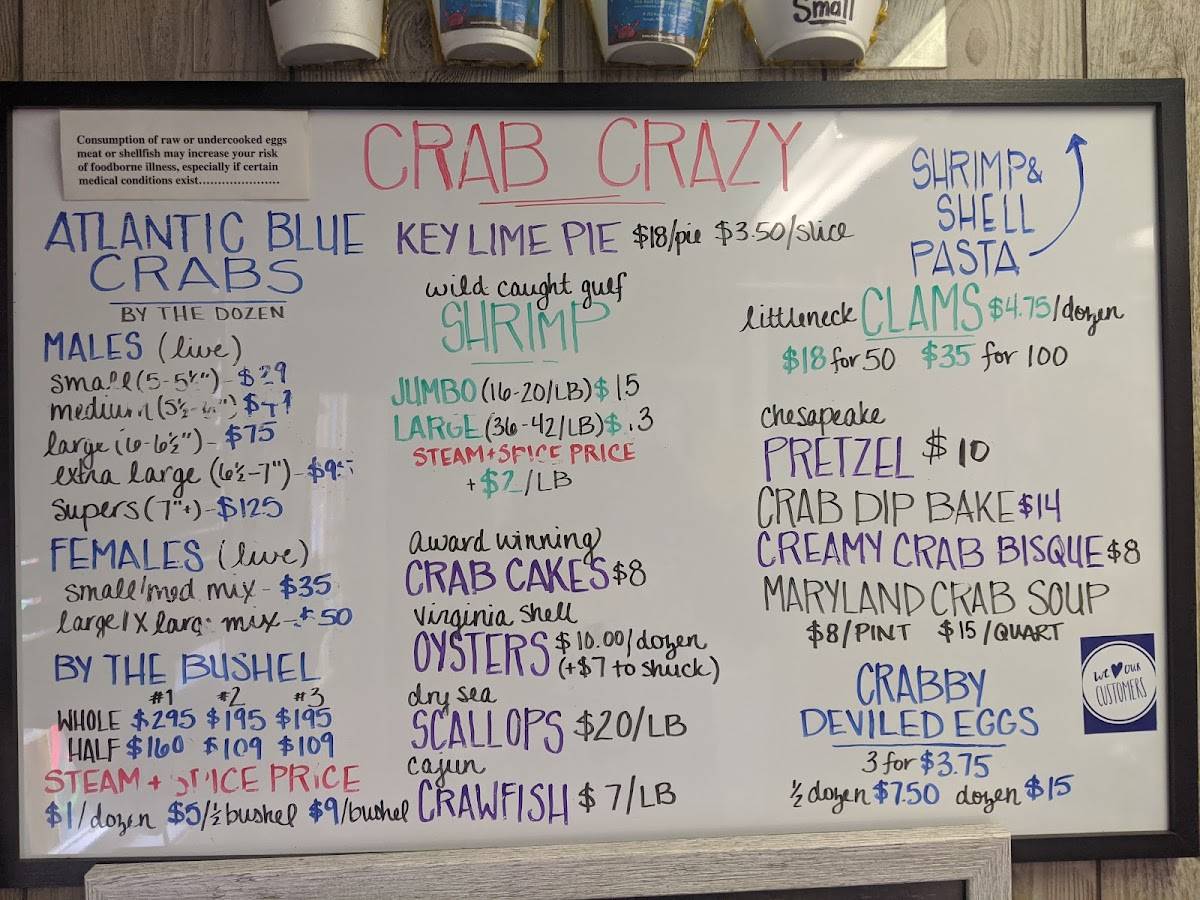 Small
Consumption of raw or undercooked eggs
meat or shellfish may increase your risk
of foodborne illness, especially if certain
medical conditions exist.....................
CRAB CRAZY
ATLANTIC BLUE
CRABS
BY THE DOZEN
MALES (live)
small (5-5½") - $29
medium (5½-
large (6-6½") - $75
extra large (6½-7") -
Supers (7"+) - $125
FEMALES (live)
small/med mix - $35
large/X large mix - $50
BY THE BUSHEL
#1 #2 #3
WHOLE $295 $195 $195
HALF $160 $109 $109
STEAM + SPICE PRICE
$1/dozen $5/½ bushel $9/bushel
KEY LIME PIE $18/pie $3.50/slice
wild caught gulf
SHRIMP
JUMBO (16-20/LB) $15
LARGE (36-42/LB)
STEAM + SPICE PRICE
+ $2/LB
award winning
CRAB CAKES $8
Virginia Shell
OYSTERS $10.00/dozen
(+$7 to shuck)
dry sea
SCALLOPS $20/LB
cajun
CRAWFISH $7/LB
SHRIMP &
SHELL
PASTA
littleneck CLAMS $4.75/dozen
$18 for 50 $35 for 100
chesapeake
PRETZEL $10
CRAB DIP BAKE $14
CREAMY CRAB BISQUE $8
MARYLAND CRAB SOUP
$8/PINT $15/QUART
WE OUR
CUSTOMERS
CRABBY
DEVILED EGGS
3 for $3.75
½ dozen $7.50 dozen $15